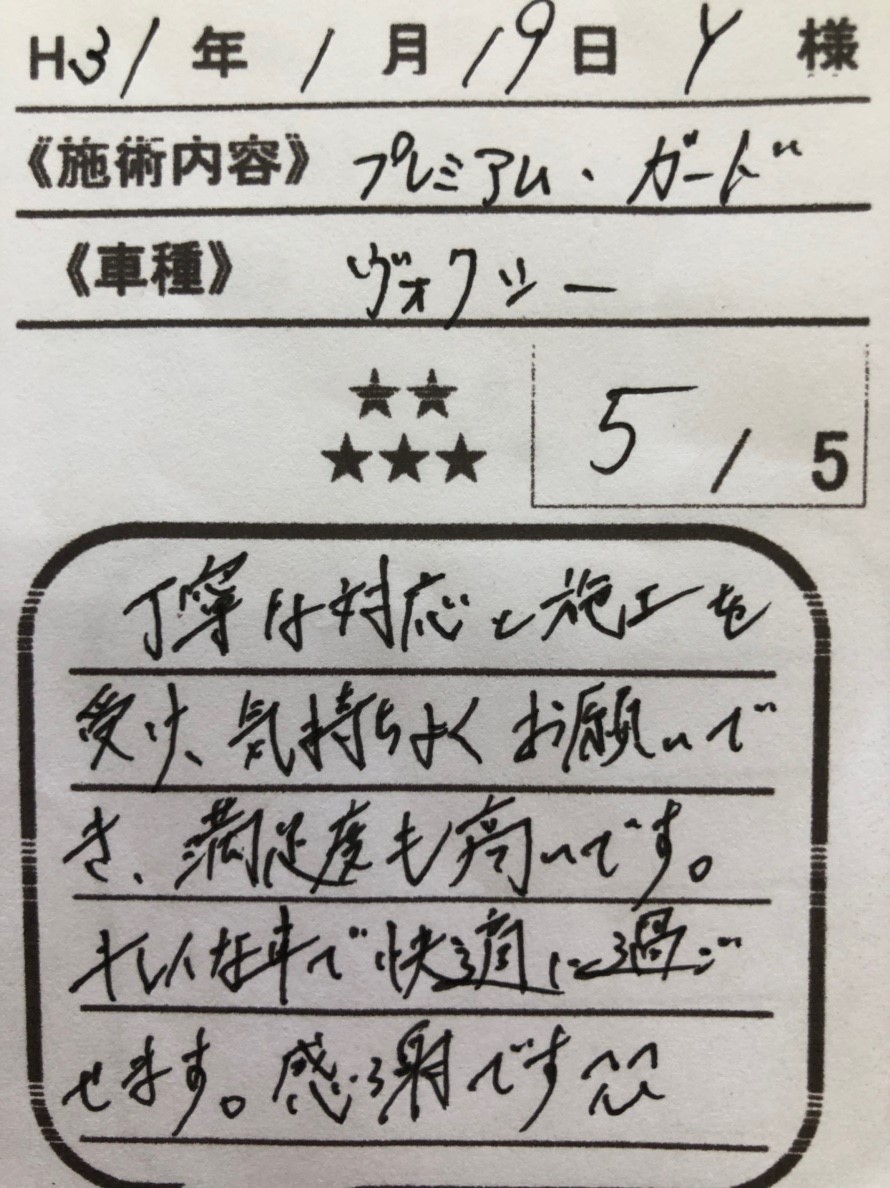 H31年1月19日 Y 様
《施術内容》 プレミアム・ガード
《車種》 ヴォクシー
★★
★★★ 5/5
丁寧な対応と施工を
受け、気持ちよくお願いで
き、満足度も高いです。
キレイな車で快適に過ご
せます。感謝です^^